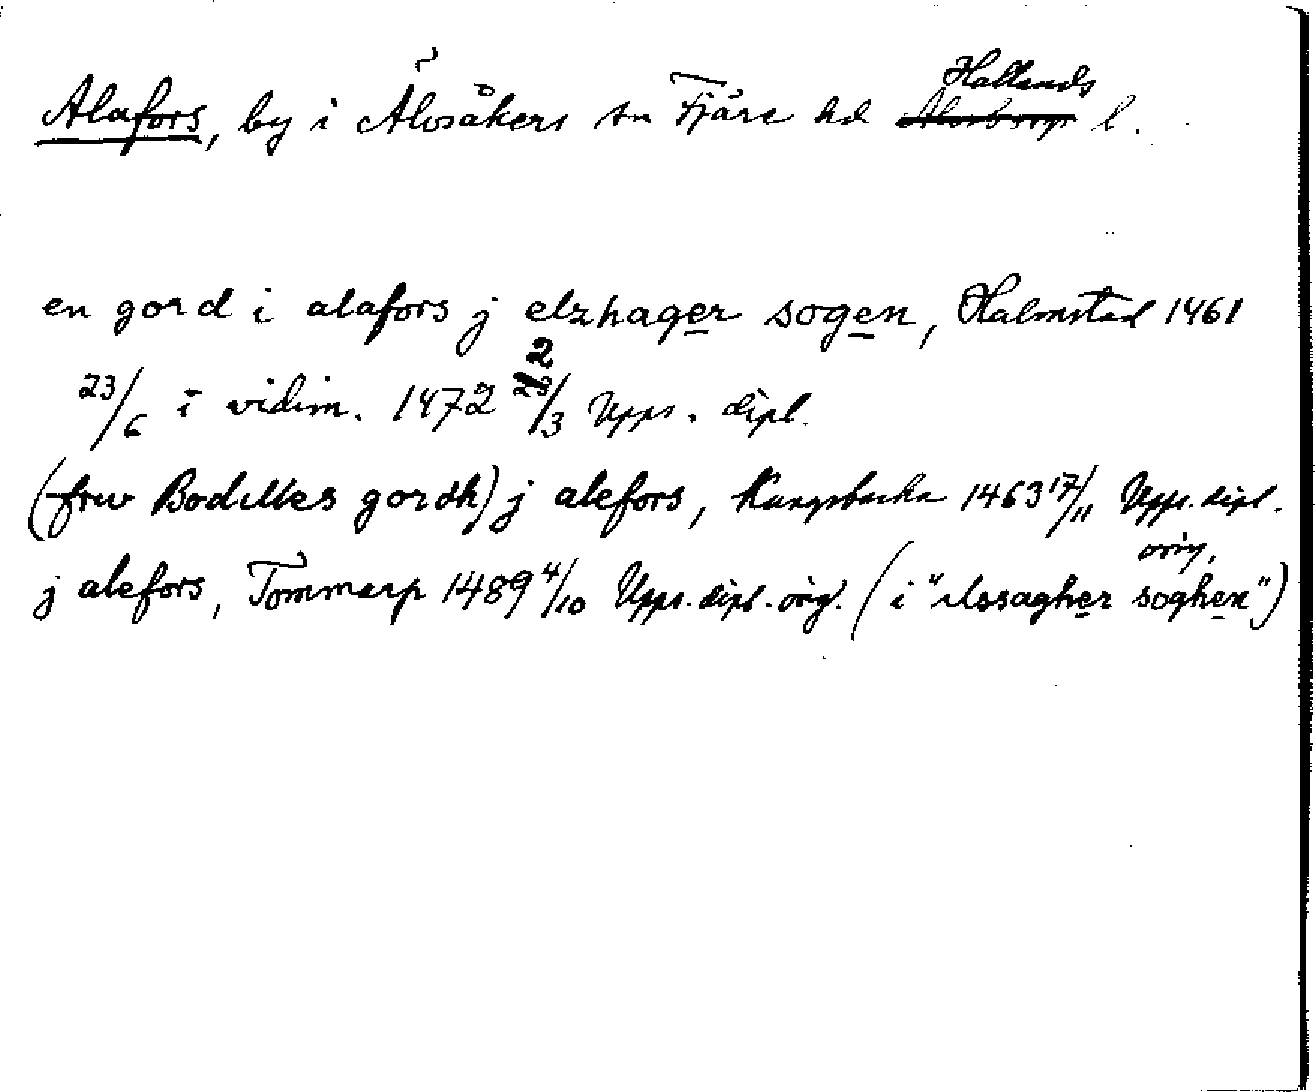 Alafors, by i Älvsåkers sn Fjäre hd Hallands l.
en gord i alafors j elzhager sogen, Halmstad 1461
23/6 i vidim. 1472 22/3 Upps. dipl.
(frw Bodilles gordh) j alefors, Kungsbacka 1463 17/11 Upps. dipl. orig.
j alefors, Tommarp 1489 4/10 Upps. dipl. orig. (i "elssagher soghen")